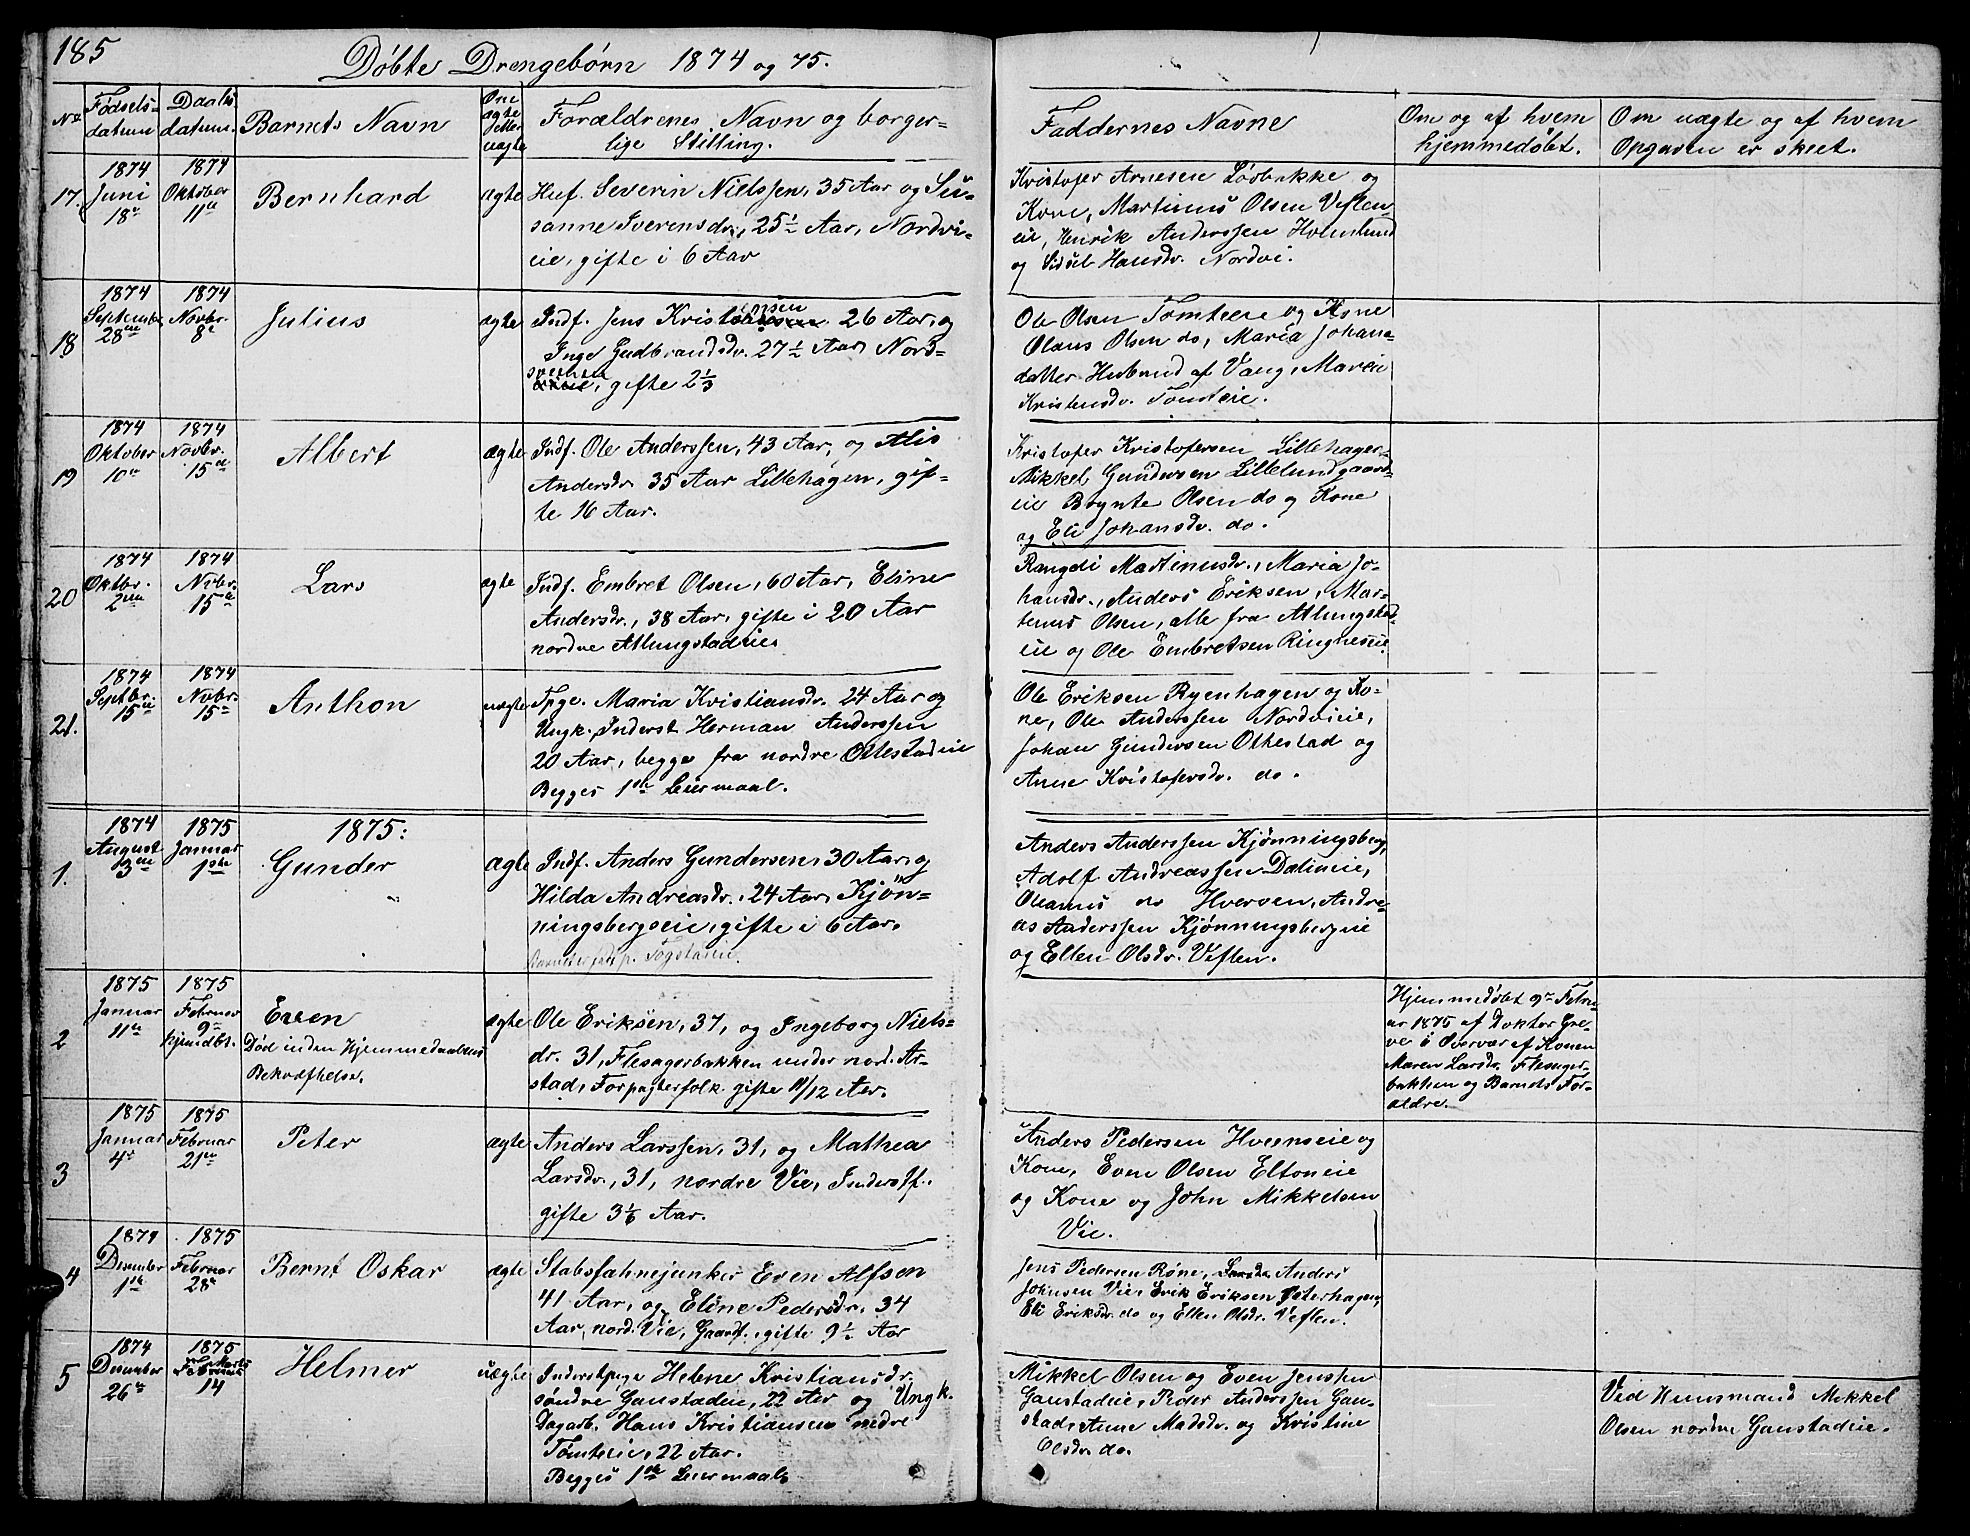 185
Døbte Drengebørn 1874 og 75.
No
Fødsels-
datum
Daabs
datum.
Barnets Navn
Om
ægte
eller
uægte
Forældrenes Navn og borger-
lige Stilling.
Faddernes Navne
Om og af hvem
hjemmedøbt.
Om uægte og af hvem
Opgaven er skeet.
17.
1874
Juni
18de
1874
Oktober
11te
Bernhard
ægte
Huf. Severin Nielssen, 35 Aar og Su-
sanne Iverensdr., 25½ Aar, Nordvi-
eie, gifte i 6 Aar
Kristofer Arnesen Løvbakke og
Kone, Martinus Olsen Veflen-
eie, Henrik Anderssen Holmlund
og Sidsel Hansdr. Nordvi.
18
1874
September
28de
1874
Novbr.
8de
Julius
ægte
Indf. Jens Kristensen 26 Aar, og
Inge Gudbrandsdr. 27½ Aar Nord-
sveen
gifte 2⅓
Ole Olsen Tomteeie og Kone
Olaus Olsen do, Maria Johan-
datter Husbund af Vang, Maren
Kristensdr. Tomteie.
19
1874
Oktober
10de
1874
Novbr.
15de
Albert
ægte
Indf. Ole Anderssen, 43 Aar, og Alis
Andersdr 35 Aar Lillehagen, gif-
te 16 Aar.
Kristofer Kristofersen Lillehagen
Mikkel Gundersen Lillelundgaard-
eie Brynte Olsen do og Kone
og Eli Johansdr. do.
20
1874
Oktbr.
2den
1874
Novbr.
15de
Lars
ægte
Indf. Embret Olsen, 60 Aar, Eline
Andersdr., 38 Aar, gifte i 20 Aar
nordre Atlungstadeie
Rangdi Martinusdr., Maria Jo-
hansdr., Anders Eriksen, Mar-
tenus Olsen, alle fra Atlungstad-
eie og Ole Embretsen Ringneseie
21.
1874
Septbr.
15de
1874
Novbr.
15de
Anthon
uægte
Tpge. Maria Kristiansdr. 24 Aar og
Ungk. Inderst Herman Anderssen
20 Aar, begge fra nordre Ottestadeie
Begges 1ste Leiermaal.
Ole Eriksen Ryenhagen og Ko-
ne, Ole Anderssen Nordvieie,
Johan Gundersen Othestad og
Anne Kristofersdr. do.
1875:
1.
1874
August
3die
1875
Januar
1ste
Gunder
ægte
Indf. Anders Gundersen, 30 Aar, og
Hilda Andreasdr., 24 Aar, Kjøn-
ningsbergseie, gifte i 6 Aar.
Barnet er født p. Togstadeie.
Anders Anderssen Kjønningsberg,
Adolf Andreassen Dalineie,
Oleanus do Hversen, Andre-
as Anderssen Kjønningsbergeie
og Ellen Olsdr. Veflen.
2
1875
Januar
11te
1875
Februar
9de
hjemdbt.
Even
Død inden Hjemmedaabens
Bekræftelse.
ægte
Ole Eriksen, 37, og Ingeborg Niels-
dr. 31, Flesagerbakken under nord. Ar-
stad, Forpagterfolk gifte 11/12 Aar.
Hjemmedøbt 9de Febru-
ar 1875 af Doktor Gre-
ve i Overvær af Konen
Maren Larsdr. Flesager-
bakken og Barnets For-
ældre.
3
1875
Januar
4de
1875
Februar
21de
Peter
ægte
Anders Larssen, 31, og Mathea
Larsdr., 31, nordre Vie, Inderstf.
gifte 3⅙ Aar.
Anders Pedersen Hveenseie og
Kone, Even Olsen Eltoneie
og Kone og John Mikkelsen
Vie.
4
1874
December
1ste
1875
Februar
28de
Bernt Oskar
ægte
Stabsfahnejunker Even Alfsen
41 Aar, og Eline Pedersdr. 34
Aar, nord. Vie, Gaardf., gifte 9½ Aar
Jens Pedersen Røne, Anders
Johnsen Vie, Erik Eriksen Østerhagen,
Eli Eriksdr. do og Ellen Olsdr. Veflen.
5
1874
December
26de
1875
Marts
14
Helmer
uægte
Inderstpige Helene Kristiansdr.
søndre Gaustadeie, 22 Aar og Ungk.
Dagarb. Hans Kristiansen nedre
Tomteie, 22 Aar.
Begges 1ste Leiermaal.
Mikkel Olsen og Even Jenssen
Gaustadeie, Peder Anderssen Gau-
stad, Anne Madsdr. og Kristine
Olsdr. do.
Ved Huusmand Mikkel
Olsen nordre Gaustadeie.